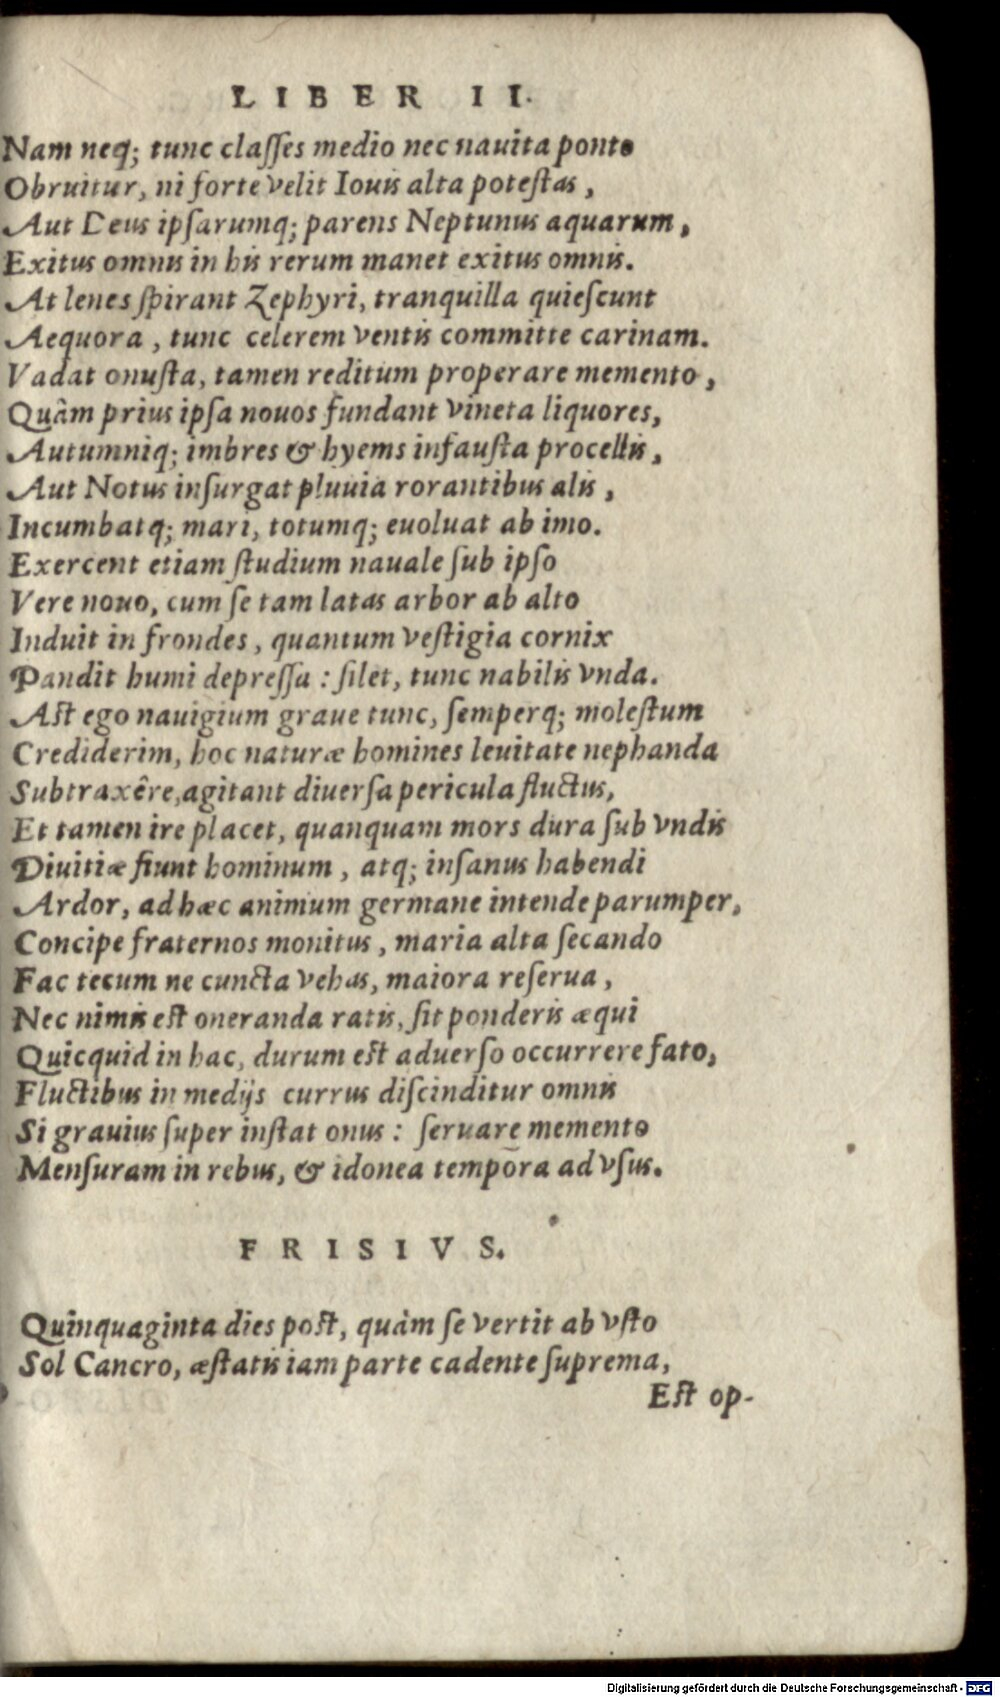 LIBER II.
Nam neq; tunc claſſes medio nec nauita ponto
Obruitur, ni forte velit Iouis alta poteſtas,
Aut Deus ipſarumq; parens Neptunus aquarum,
Exitus omnis in his rerum manet exitus omnis.
At lenes ſpirant Zephyri, tranquilla quieſcunt
Aequora, tunc celerem ventis committe carinam.
Vadat onuſta, tamen reditum properare memento,
Quàm prius ipſa nouos fundant vineta liquores,
Autumniq; imbres & hyems infauſta procellis,
Aut Notus inſurgat pluuia rorantibus alis,
Incumbatq; mari, totumq; euoluat ab imo.
Exercent etiam ſtudium nauale ſub ipſo
Vere nouo, cum ſe tam latas arbor ab alto
Induit in frondes, quantum veſtigia cornix
Pandit humi depreſſa: ſilet, tunc nabilis vnda.
Aſt ego nauigium graue tunc, ſemperq; moleſtum
Crediderim, hoc naturæ homines leuitate nephanda
Subtraxêre, agitant diuerſa pericula fluctus,
Et tamen ire placet, quanquam mors dura ſub vndis
Diuitiæ fiunt hominum, atq; inſanus habendi
Ardor, ad hæc animum germane intende parumper,
Concipe fraternos monitus, maria alta ſecando
Fac tecum ne cuncta vehas, maiora reſerua,
Nec nimis eſt oneranda ratis, ſit ponderis æqui
Quicquid in hac, durum eſt aduerſo occurrere fato,
Fluctibus in medijs currus diſcinditur omnis
Si grauius ſuper inſtat onus: ſeruare memento
Menſuram in rebus, & idonea tempora ad vſus.
FRISIVS.
Quinquaginta dies poſt, quàm ſe vertit ab vſto
Sol Cancro, æſtatis iam parte cadente ſuprema,
Eſt op-
Digitalisierung gefördert durch die Deutsche Forschungsgemeinschaft - DFG